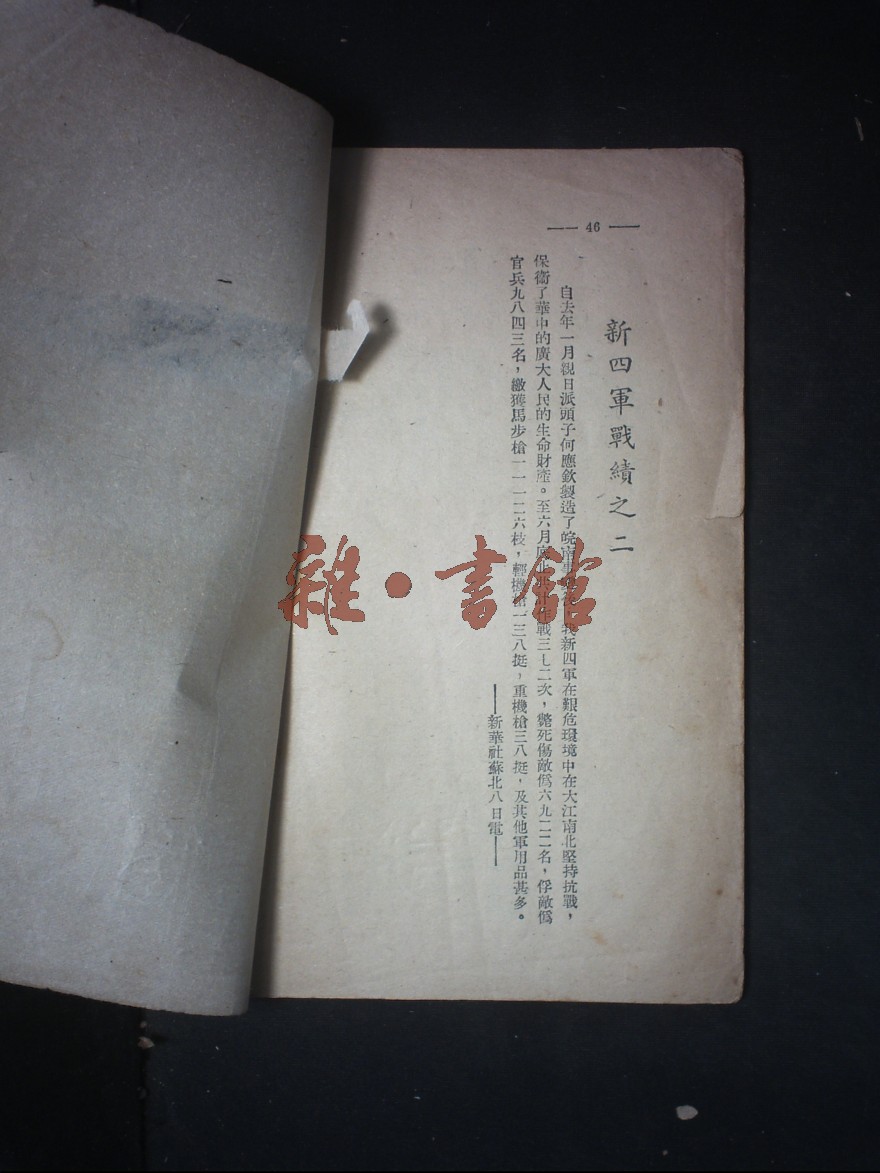 — 46 —
新四軍戰績之二
自去年一月親日派頭子何應欽製造了皖南事 我新四軍在艱危環境中在大江南北堅持抗戰，
保衞了華中的廣大人民的生命財產。至六月底止 戰三七二次，斃死傷敵僞六九二二名，俘敵僞
官兵九八四三名，繳獲馬步槍一一一二六枝，輕機槍一三八挺，重機槍三八挺，及其他軍用品甚多。
——新華社蘇北八日電——
雜·書館